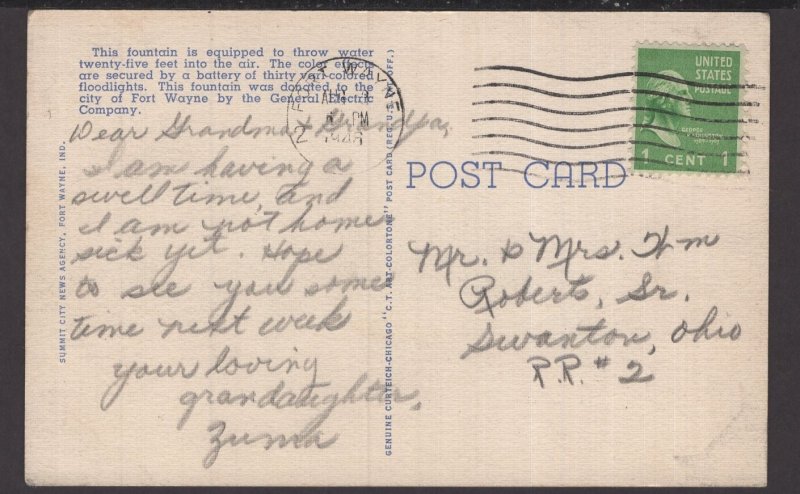 This fountain is equipped to throw water
twenty-five feet into the air. The color effects
are secured by a battery of thirty vari-colored
floodlights. This fountain was donated to the
city of Fort Wayne by the General Electric
Company.
Dear Grandma & Grandpa,
I am having a
swell time, and
I am not home
sick yet. Hope
to see you some
time next week
your loving
grandaughter,
Zuma
SUMMIT CITY NEWS AGENCY, FORT WAYNE, IND.
GENUINE CURTEICH-CHICAGO "C.T. ART-COLORTONE" POST CARD (REG. U.S. PAT. OFF.)
FORT WAYNE
2
PM
POST CARD
UNITED
STATES
POSTAGE
GEORGE
WASHINGTON
1 CENT 1
Mr. & Mrs. Wm
Roberts, Sr.
Swanton, Ohio
R.R. # 2